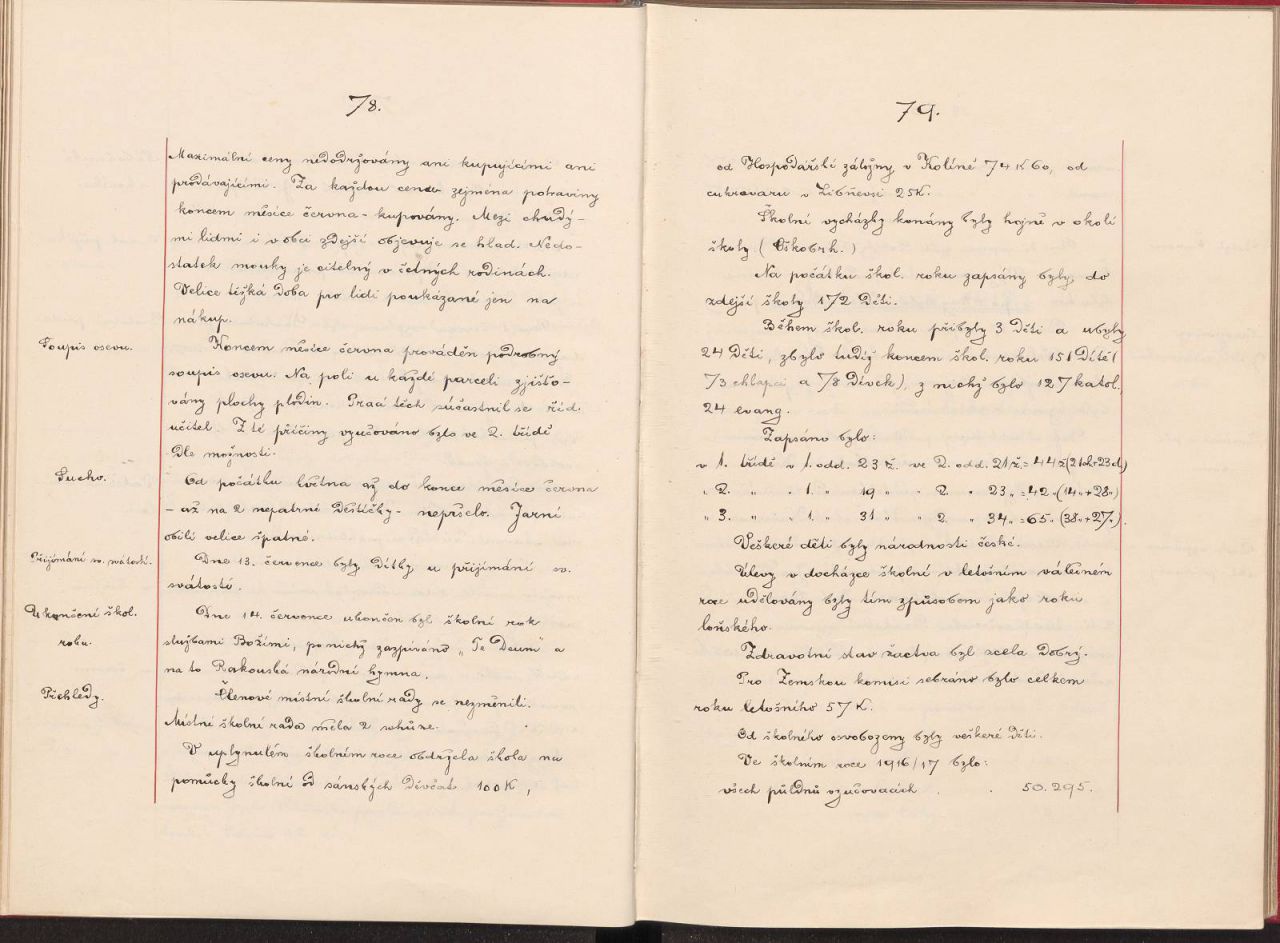 78.
Maximální ceny nedodržovány ani kupujícími ani
prodávajícími. Za každou cenu zejmena potraviny
koncem měsíce června - kupovány. Mezi chudý-
mi lidmi i v obci zdejší objevuje se hlad. Nedo-
statek mouky je citelný v četných rodinách.
Velice těžká doba pro lidi poukázané jen na
nákup.
Soupis osevu.
Koncem měsíce června prováděn podrobný
soupis osevu. Na poli u každé parceli zjišťo-
vány plochy plodin. Prací těch súčastnil se říd.
učitel. Z té příčiny vyučováno bylo ve 2. třídě
dle možnosti.
Sucho.
Od počátku května až do konce měsíce června
- až na 2 nepatrné deštíčky - nepršelo. Jarní
obilí velice špatné.
Přijímání sv. svátostí.
Dne 13. července byly dítky u přijímání sv.
svátostí.
Ukončení škol.
roku.
Dne 14. července ukončen byl školní rok
službami Božími, po nichž zazpíváno „Te Deum" a
na to Rakouská národní hymna.
Přehledy.
Členové místní školní rady se nezměnili.
Místní školní rada měla 2 schůze.
V uplynulém školním roce obdržela škola na
pomůcky školní od sánských děvčat 100 K,
79.
od Hospodářské záložny v Kolíně 74 K 60, od
cukrovaru v Libněvsi 25 K.
Školní vycházky konány byly hojně v okolí
školy (Oškobrh.)
Na počátku škol. roku zapsány byly do
zdejší školy 172 děti.
Během škol. roku přibyly 3 děti a ubyly
24 děti, zbylo tudíž koncem škol. roku 151 dítě (
73 chlapci a 78 dívek), z nichž bylo 127 katol.
24 evang.
Zapsáno bylo:
v 1. třídě v 1. odd. 23 ž. ve 2. odd. 21 ž. = 44 ž (21 ch + 23 d)
„ 2. „ „ 1. „ 19 „ „ 2. „ 23 „ = 42 „ (14 „ + 28 „)
„ 3. „ „ 1. „ 31 „ „ 2. „ 34 „ = 65. (38 „ + 27.).
Veškeré děti byly národnosti české.
Úlevy v docházce školní v letošním válečném
roce udělovány byly tím způsobem jako roku
loňského.
Zdravotní stav žactva byl zcela dobrý.
Pro Zemskou komisi sebráno bylo celkem
roku letošního 57 K.
Od školného osvobozeny byly veškeré děti.
Ve školním roce 1916/17 bylo:
všech půldnů vyučovacích . . 50.295.